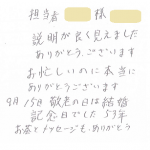 担当者 様
説明が良く見えました
ありがとうございます
お忙しいのに本当に
ありがとうございます
9月15日敬老の日は結婚
記念日でした53年
お茶とメッセージもありがとう